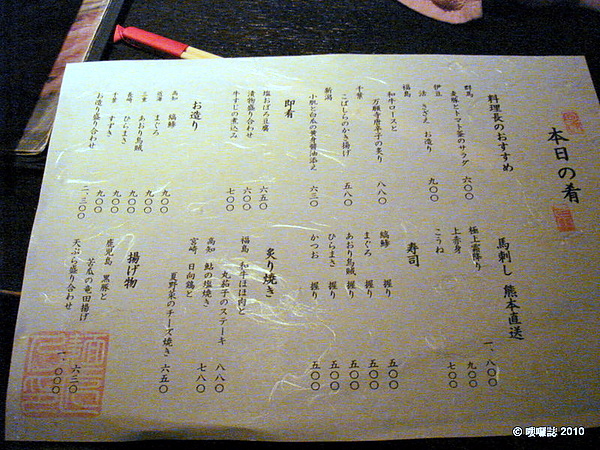 本日の肴
料理長のおすすめ
群馬
麦豚とトマト釜のサラダ 六〇〇
伊豆
活 さざえ お造り 九〇〇
福島
和牛ロースと
万願寺唐辛子の炙り 八八〇
千葉
こばしらのかき揚げ 五八〇
新潟
小肌と白瓜の黄身醤油添え 六三〇
即肴
塩おぼろ豆腐 六五〇
漬物盛り合わせ 六〇〇
牛すじの煮込み 七〇〇
お造り
高知 縞鯵 九〇〇
まぐろ 九〇〇
三重 あおり烏賊 九〇〇
長崎 ひらまさ 九〇〇
千葉 すずき 九〇〇
お造り盛り合わせ 二、三〇〇
馬刺し 熊本直送
極上霜降り 一、八〇〇
上赤身 九〇〇
こうね 七〇〇
寿司
縞鯵 握り 五〇〇
まぐろ 握り 五〇〇
あおり烏賊 握り 五〇〇
ひらまさ 握り 五〇〇
かつお 握り 五〇〇
炙り焼き
福島 和牛ほほ肉と
丸茄子のステーキ 八八〇
高知 鮎の塩焼き 七八〇
宮崎 日向鶏と
夏野菜のチーズ焼き 六五〇
揚げ物
鹿児島 黒豚と
苦瓜の竜田揚げ 六三〇
天ぷら盛り合わせ 一、〇〇〇
© 噗囉誌 2010